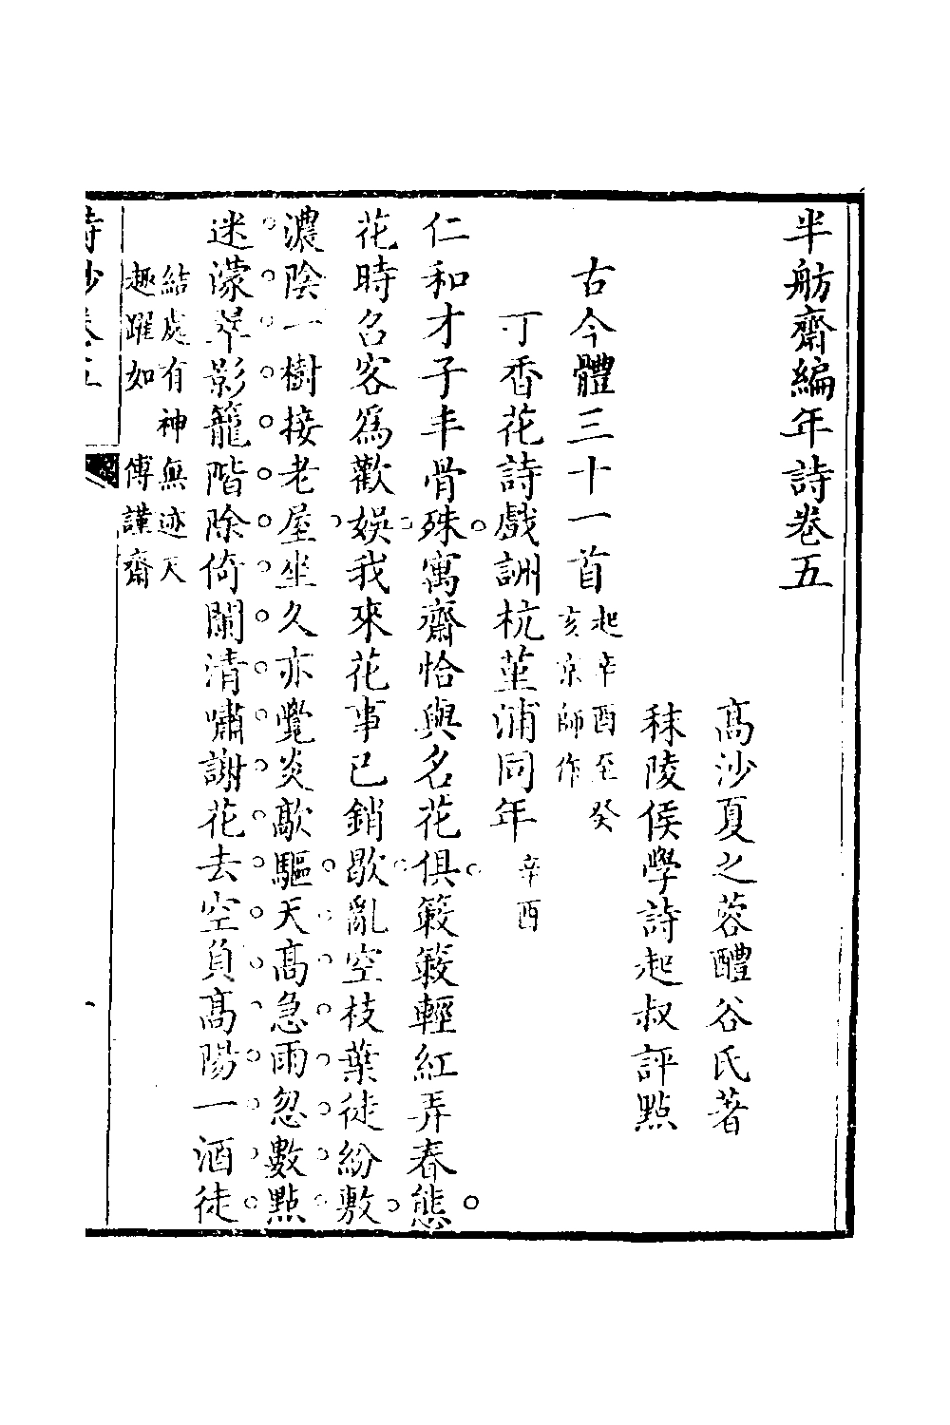 半舫齋編年詩卷五
高沙夏之蓉醴谷氏著
秣陵侯學詩起叔評點
古今體三十一首起辛酉至癸
亥京師作
丁香花詩戲詶杭菫浦同年辛酉
仁和才子丰骨殊寓齋恰與名花俱簌簌輕紅弄春態
花時召客爲歡娛我來花事已銷歇亂空枝葉徒紛敷
濃陰一樹接老屋坐久亦覺炎歊驅天高急雨忽數點
迷濛翠影籠階除倚闌清嘯謝花去空負高陽一酒徒
結處有神無迹天
趣躍如 傅謹齋
詩鈔卷五